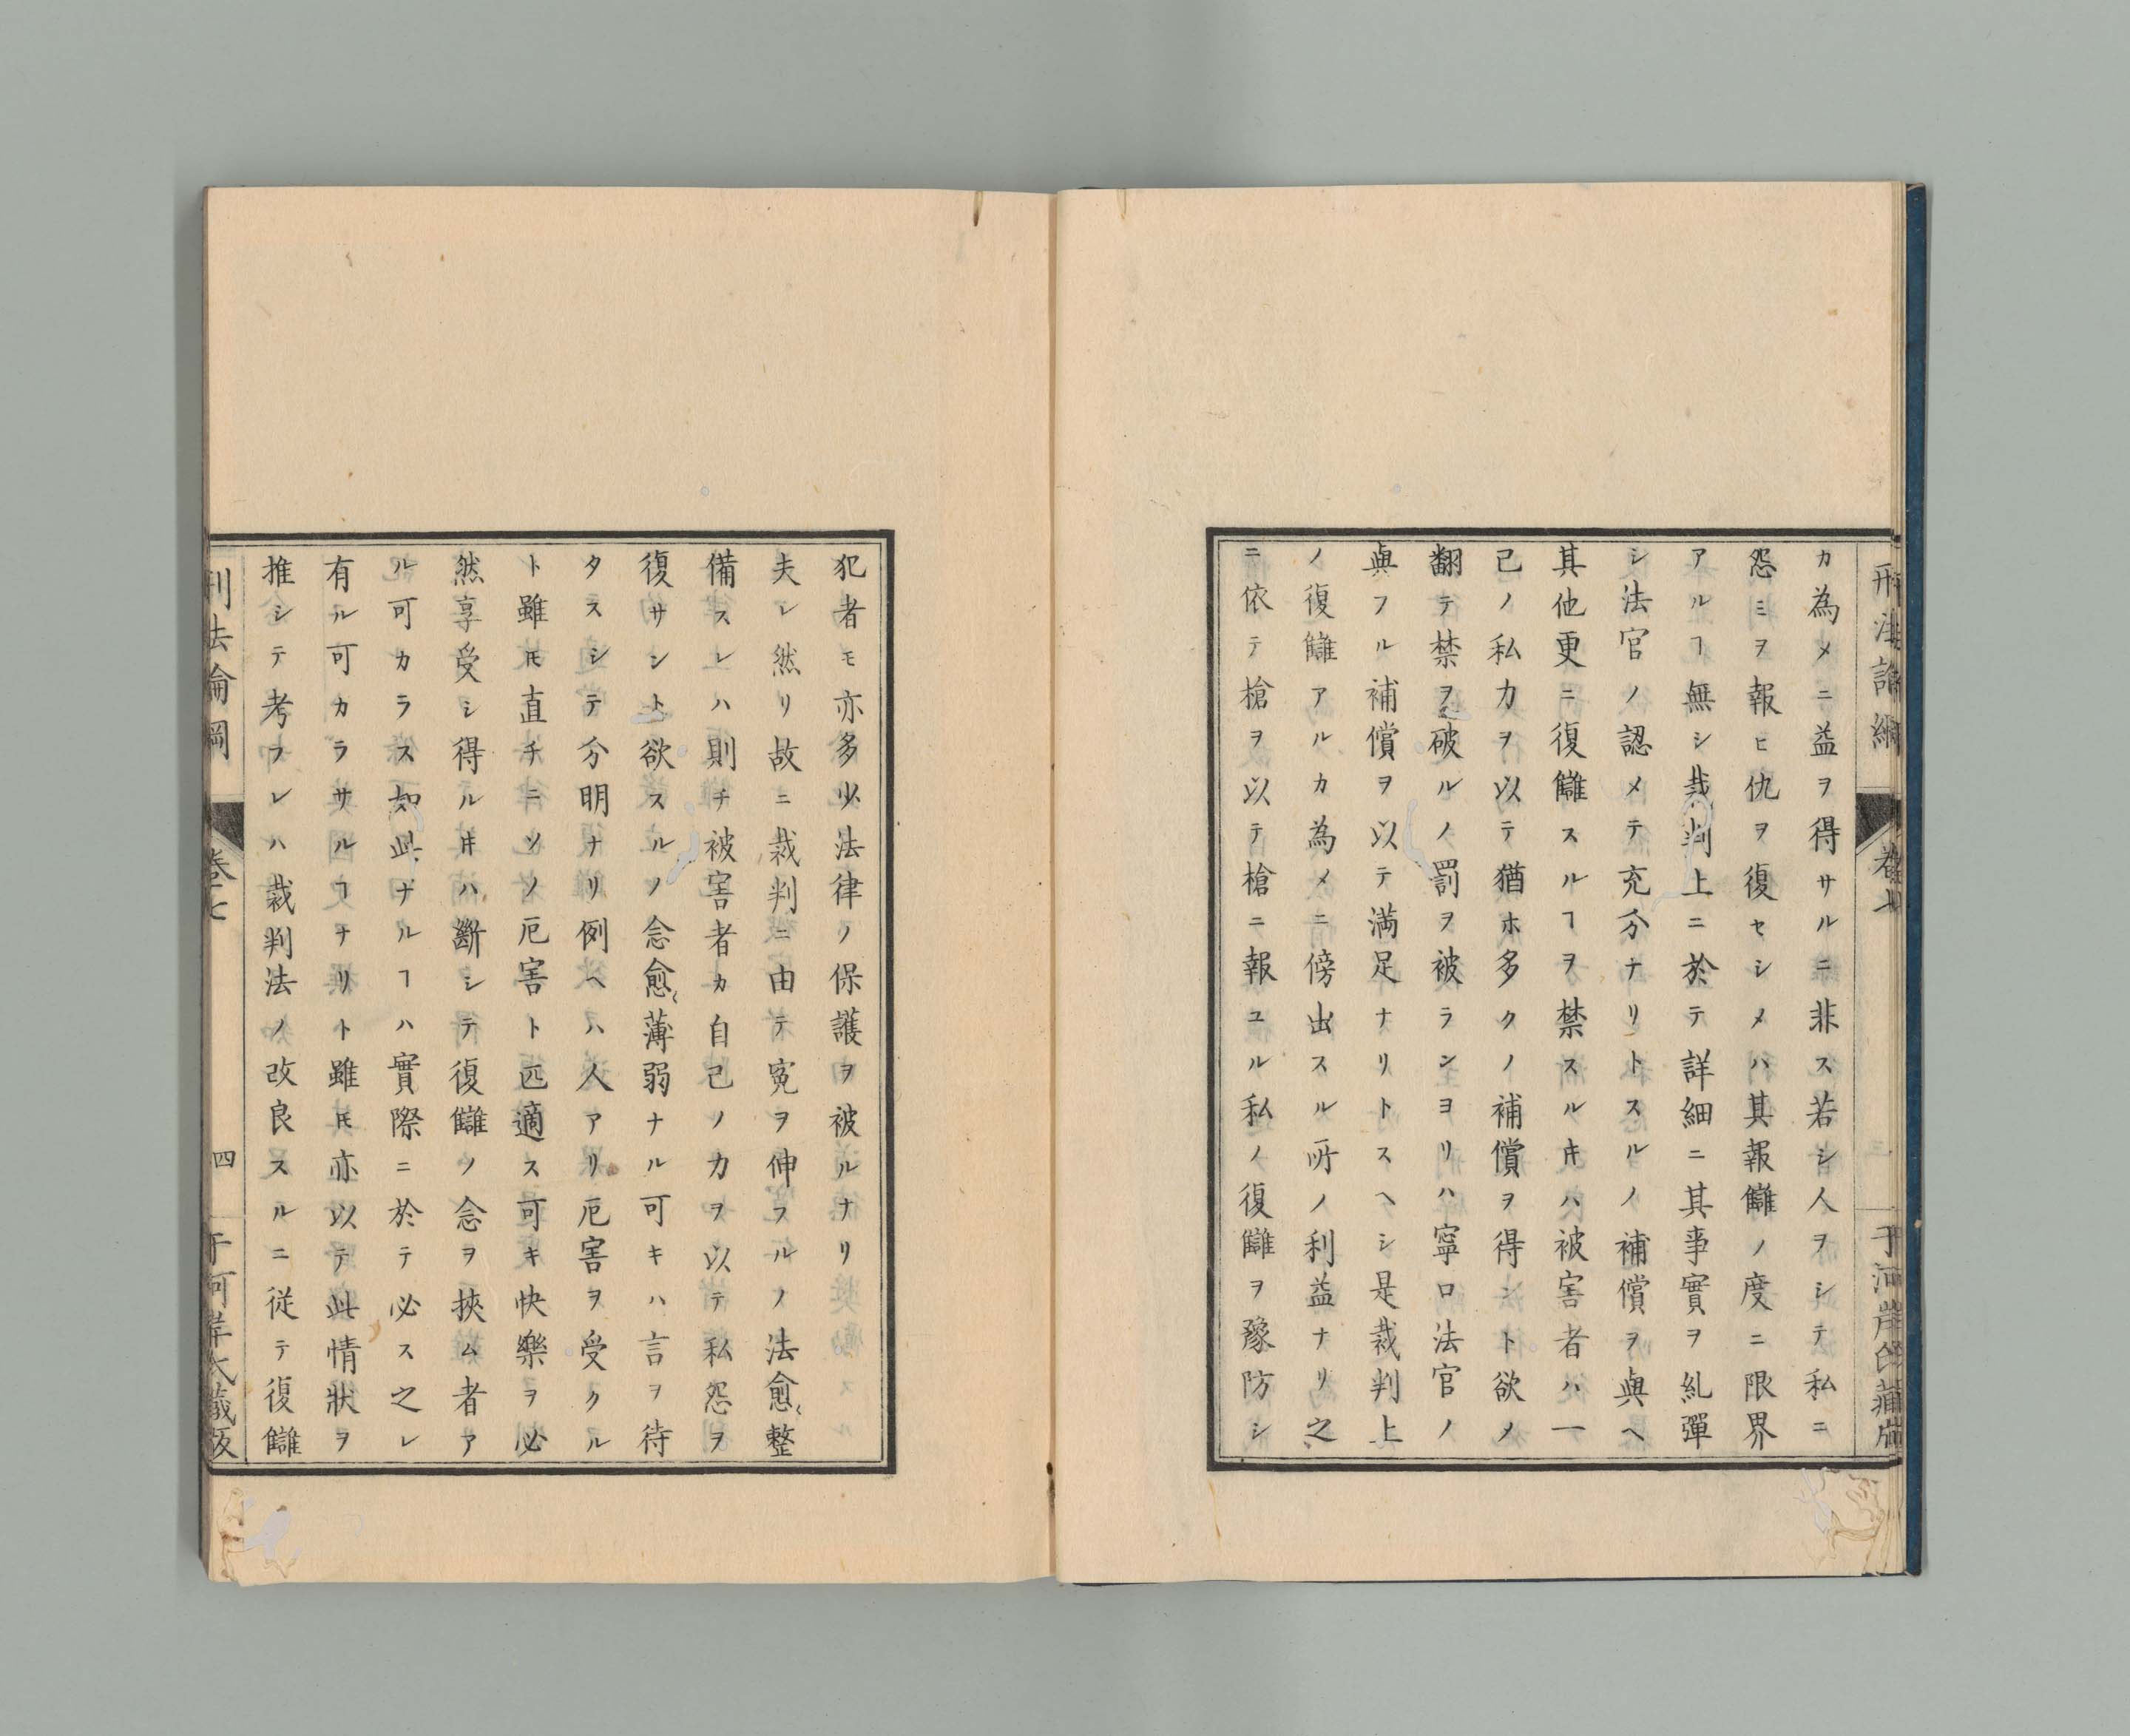 刑法論綱
巻七
カ為メニ益ヲ得サルニ非ス若シ人ヲシテ私ニ
怨ミヲ報ヒ仇ヲ復セシメハ其報讎ノ度ニ限界
アルヿ無シ裁判上ニ於テ詳細ニ其事實ヲ糺彈
シ法官ノ認メテ充分ナリトスルノ補償ヲ與ヘ
其他更ニ復讎スルヿヲ禁スルキハ被害者ハ一
己ノ私力ヲ以テ猶ホ多クノ補償ヲ得ント欲メ
翻テ禁ヲ破ルノ罰ヲ被ランヨリハ寧ロ法官ノ
與フル補償ヲ以テ満足ナリトスヘシ是裁判上
ノ復讎アルカ為メニ傍出スル所ノ利益ナリ之
ニ依テ槍ヲ以テ槍ニ報ユル私ノ復讎ヲ豫防シ
犯者モ亦多少法律ノ保護ヲ被ルナリ
夫レ然リ故ニ裁判ニ由テ寃ヲ伸フルノ法愈〻整
備スレハ則チ被害者カ自己ノ力ヲ以テ私怨ヲ
復サント欲スルノ念愈〻薄弱ナル可キハ言ヲ待
タスシテ分明ナリ例ヘハ人アリ厄害ヲ受クル
ト雖𪜈直チニソノ厄害ト匹適ス可キ快樂ヲ必
然享受シ得ルキハ斷シテ復讎ノ念ヲ挾ム者ア
ル可カラス如此ナルヿハ實際ニ於テ必ス之レ
有ル可カラサルヿナリト雖𪜈亦以テ此情狀ヲ
推シテ考フレハ裁判法ノ改良スルニ従テ復讎
刑法論綱
巻七
四
于河岸氏藏版